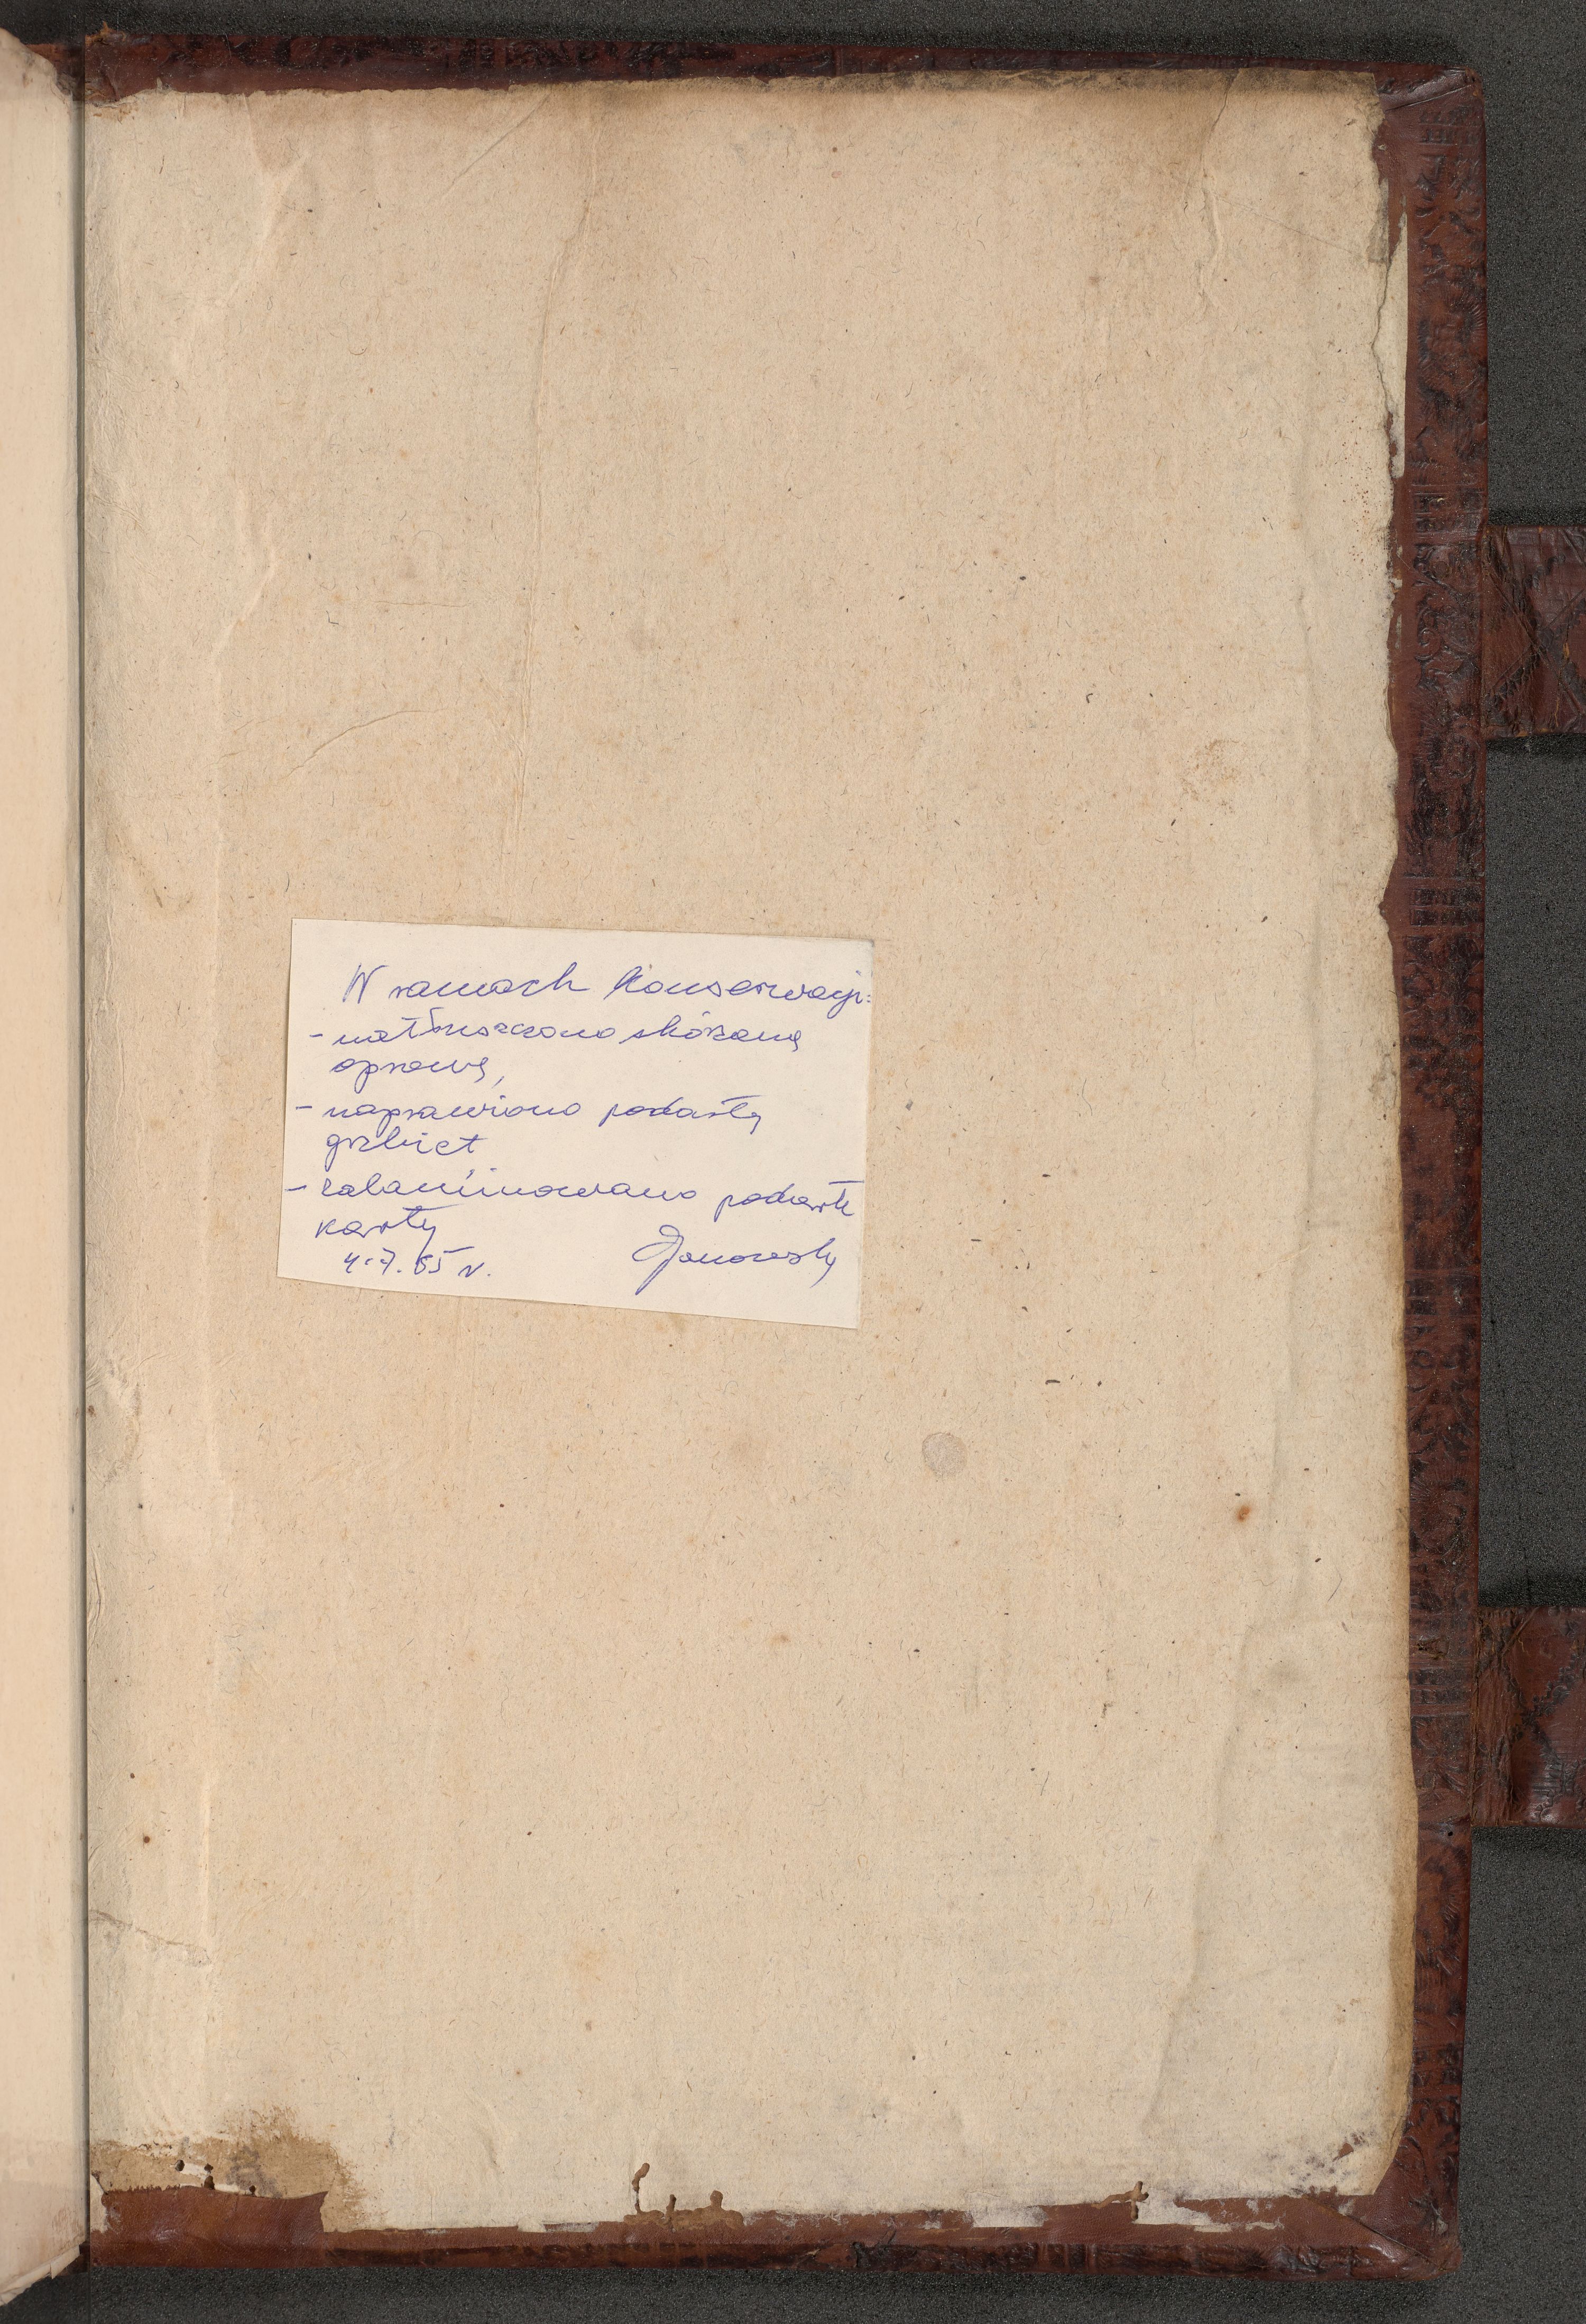 W ramach konserwacji:
- natłuszczono skórzaną
oprawę,
- naprawiono podarty
grzbiet
- zalaminowano podarte
karty
4.7.85 r. Janowski